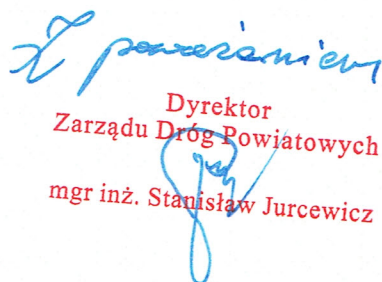 Z poważaniem
Dyrektor
Zarządu Dróg Powiatowych
mgr inż. Stanisław Jurcewicz